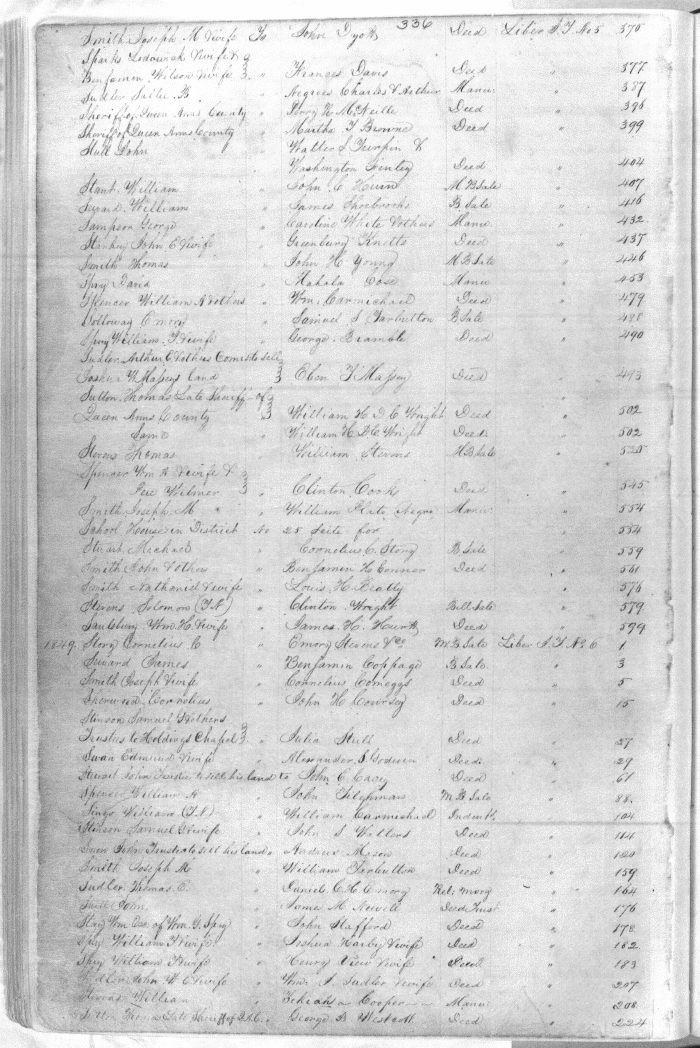 336
Smith Joseph M & wife To John Dyott Deed Liber J.T. No 5 370
Sparks Lodowick & wife &
Benjamin Wilson & wife " Frances Davis Deed " 377
Sudler Sallie B. " Negroes Charles & Arthur Manu " 387
Sheriff of Queen Anns County " Perry W. McNeille Deed " 396
Sheriff of Queen Anns County " Martha T Browne Deed " 399
Stull John " Walter S Turpin &
Washington Finley Deed " 404
Stant William " John C. M B Sale " 407
William " James B Sale " 416
Sampson George " Caroline White & others Manu " 432
Starkey John C & wife " Greenbury Knotts Deed " 437
Smith Thomas " John H Young M B Sale " 446
Spry David " Mahala Manu " 453
Spencer William A & others " Wm. Carmichael Deed " 479
Solloway Emory " Samuel S Tarbutton B Sale " 488
Spry William F & wife " George Bramble Deed " 490
Sudler Arthur E & others Coms to sell
Joshua W Masseys land " Eben T. Massey Deed " 493
Sutton Thomas Late Sheriff of
Queen Anns County " William H. D. C. Wright Deed " 502
Same " William H. D. C. Wright Deed " 502
Stevens Thomas " William Stevens B Sale " 525
Spencer Wm A & wife &
Wilmer " Clinton Cook Deed " 545
Smith Joseph M " William Negro Manu " 554
School House in District No 25 Site for " 554
Stuart Michael " Cornelius C. Story B Sale " 559
Smith John & others " Benjamin H Conner Deed " 561
Smith Nathaniel & wife " Louis H. Beatty " 576
Stevens Solomon (F.N.) " Clinton Wright Bill Sale " 579
Saulsbury Wm H. & wife " James H. Deed " 599
1849 Story Cornelius C " Emory Stevens M B Sale Liber J.T. No 6 1
Seward James " Benjamin Coppage B Sale " 3
Smith Joseph & wife " Cornelius Comegys Deed " 5
Sherwood Cornelius " John H Coursey Deed " 15
Stinson Samuel & others
Trustees to Holdings Chapel " Julia Stull Deed " 27
Swan Edmund & wife " Alexander S Godwin Deed " 29
Stewart John Trustee to sell his land to John C. Cacy Deed " 61
Spencer William A " John Tilghman M B Sale " 88
William (F.N.) " William Carmichael Indent. " 104
Stinson Samuel & wife " John S Walters Deed " 114
John Trustee to sell his land " Andrew Mason Deed " 120
Smith Joseph M " William Tarbutton Deed " 159
Sudler Thomas E. " Daniel C. H. Emory Rel. Morg " 164
John " James M Newell Deed Trust " 176
Spry Wm Exr. of Wm. G. Spry " John Stafford Deed " 178
Spry William F & wife " Joshua & wife Deed " 182
Spry William F & wife " Henry & wife Deed " 183
Sudler John W & wife " Wm. J. Sudler & wife Deed " 207
Stevens William " Cooper Manu " 208
Sutton Thomas Late Sheriff of Q.A.C. " George B Westcott Deed " 224